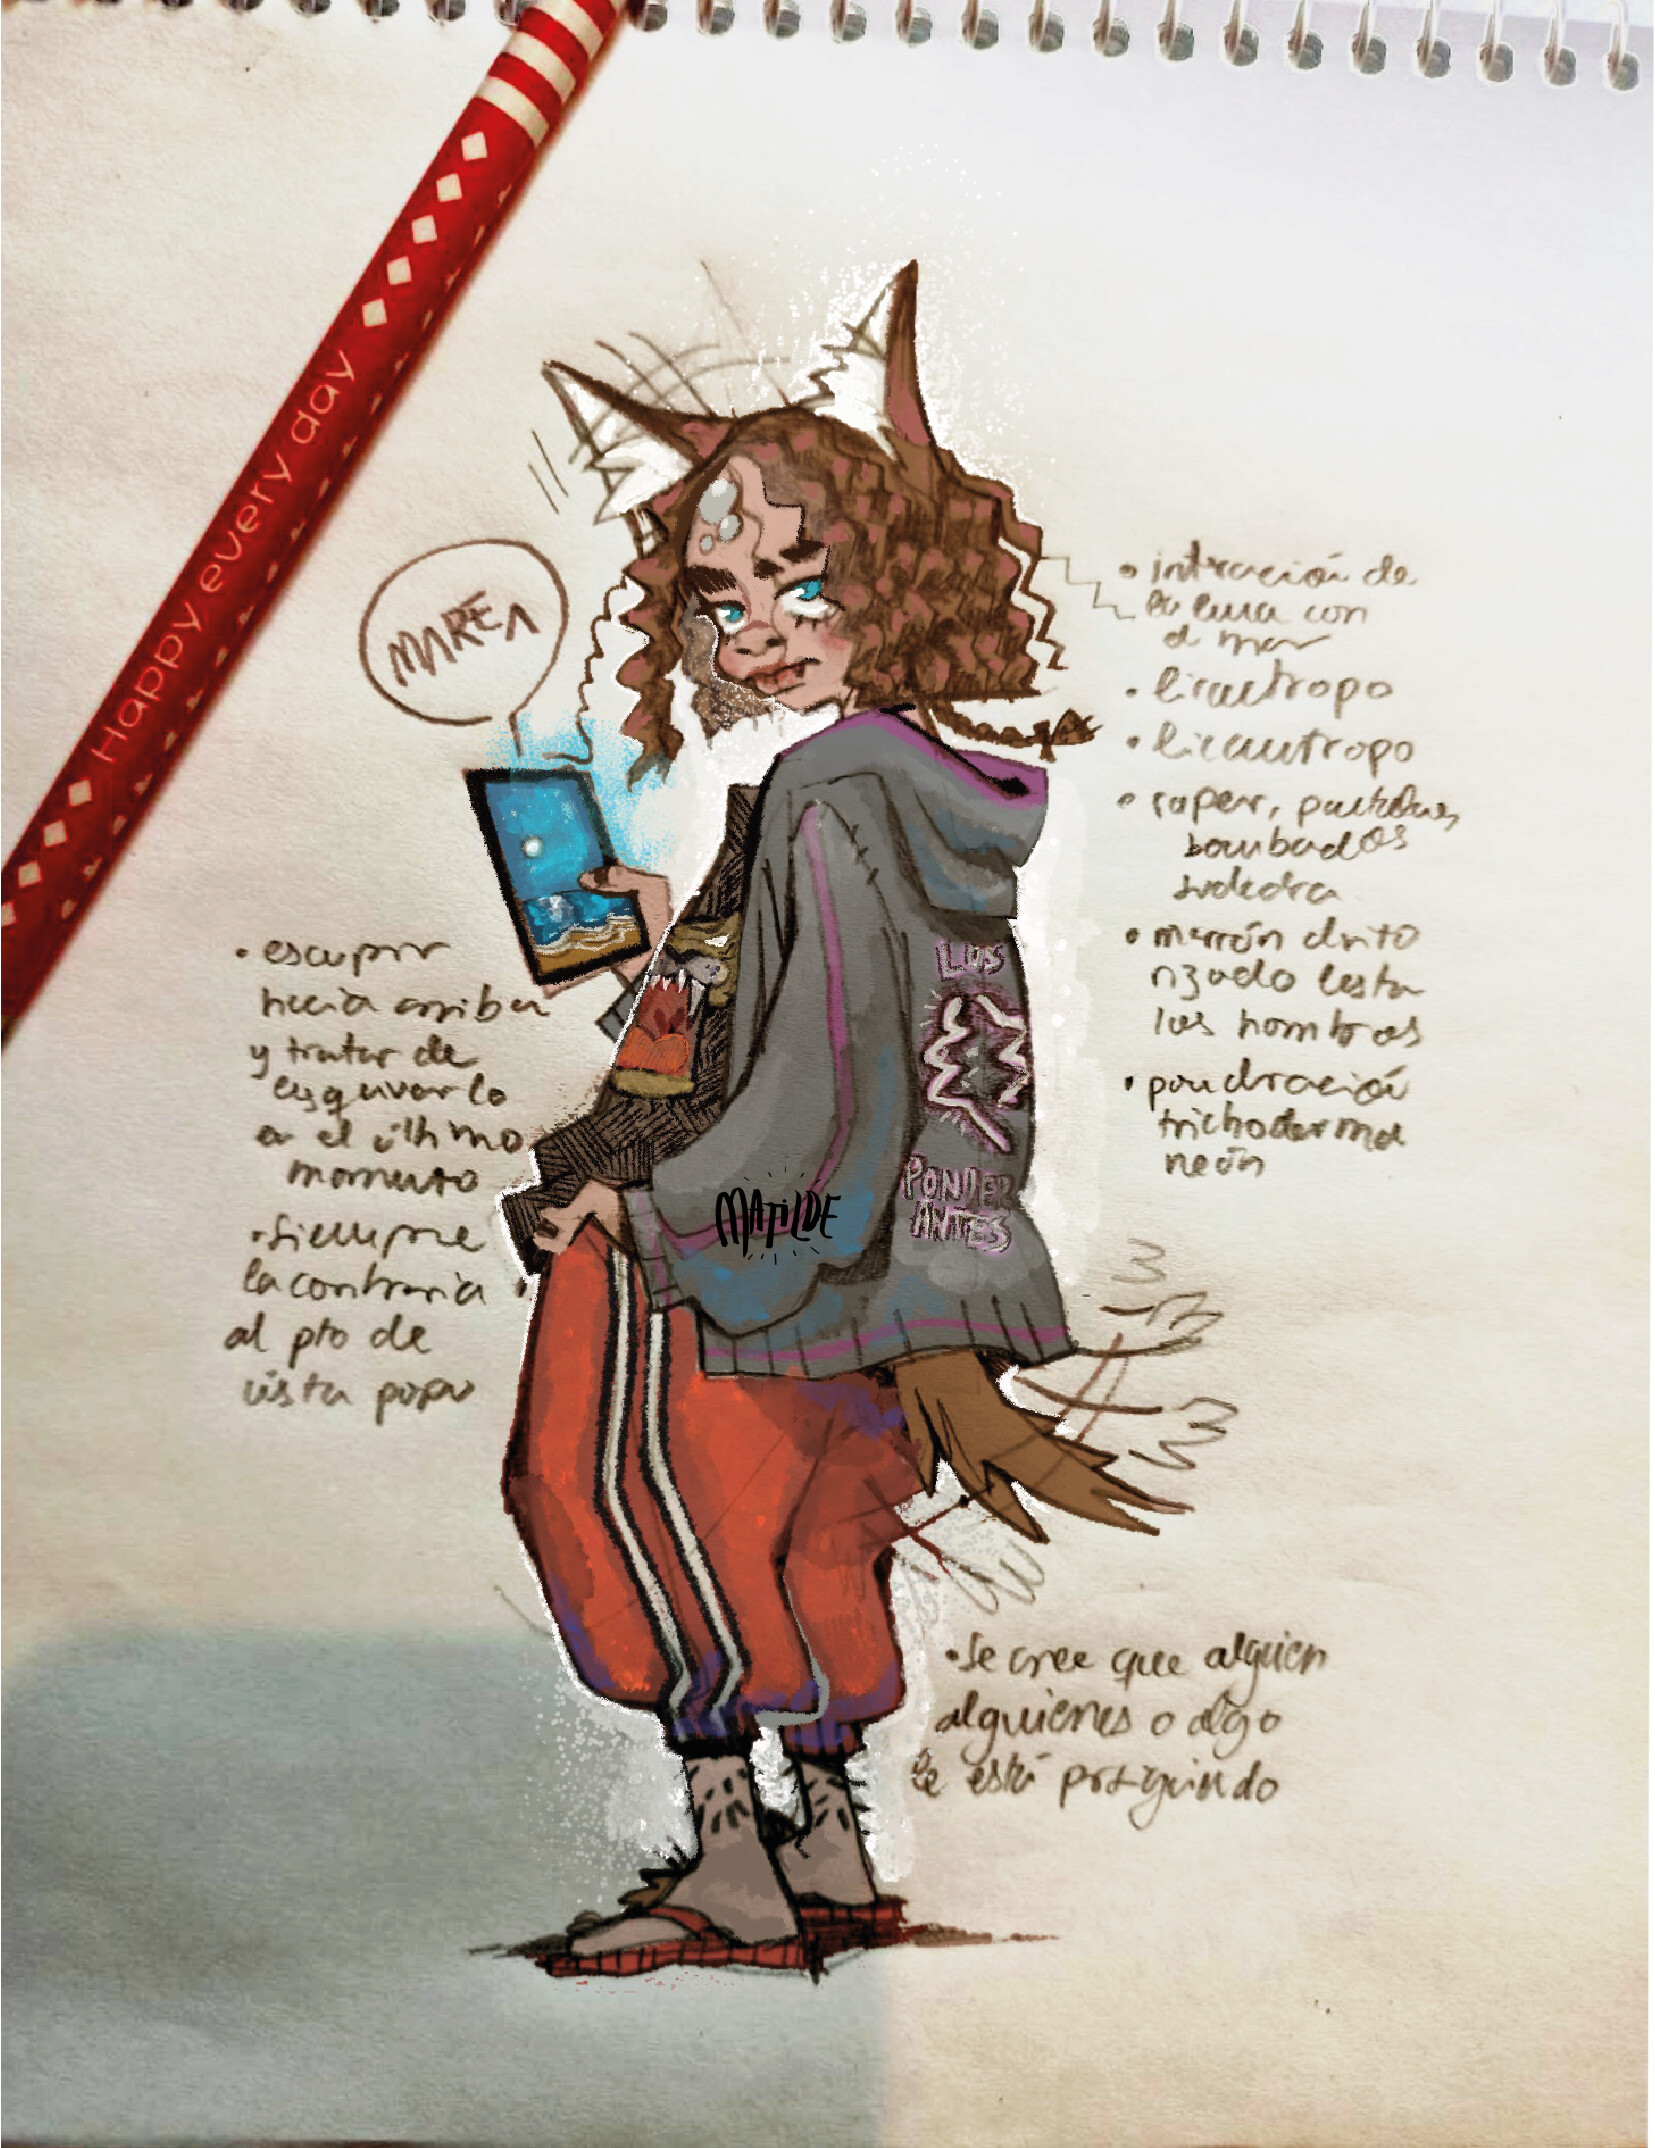 Happy every day
MAREA
• intración de
la luna con
el mar
• licantropo
• licantropo
• raper,
bombados
sudadra
• marrón
rizado hasta
los hombros
•
trichoderma
neón
• escupir
hacia arriba
y tratar de
esquivarlo
en el último
momento
• Siempre
la contraria
al pto de
vista popu
LOS
PONDER
ANTES
MATiLDE
• Se cree que alguien
alguienes o algo
le está